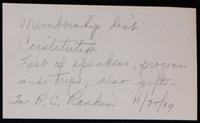 Membership list
Constitution
List of speakers, program
and trips, also gift-
To R.C. Rankin 11/20/39